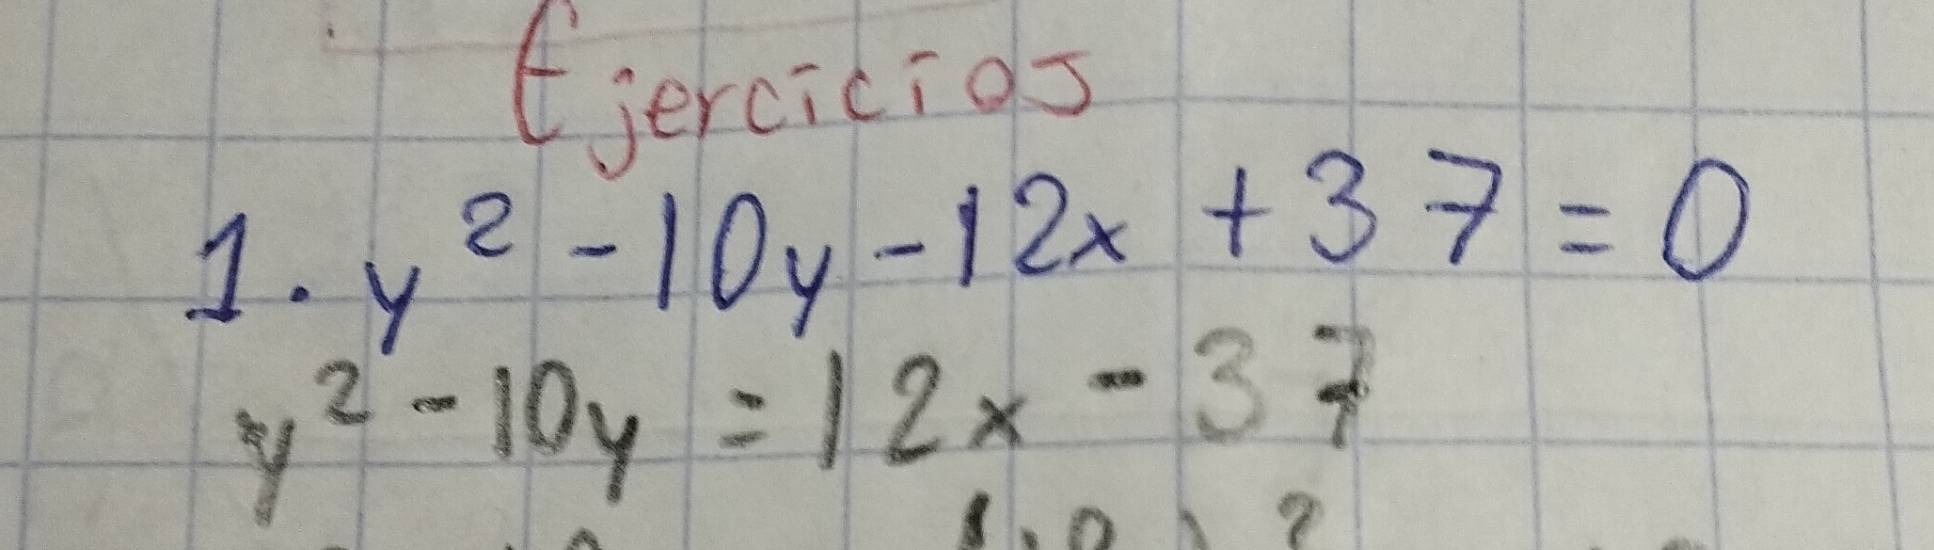 Ejercicios
1. y² - 10y - 12x + 37 = 0
y² - 10y = 12x - 37